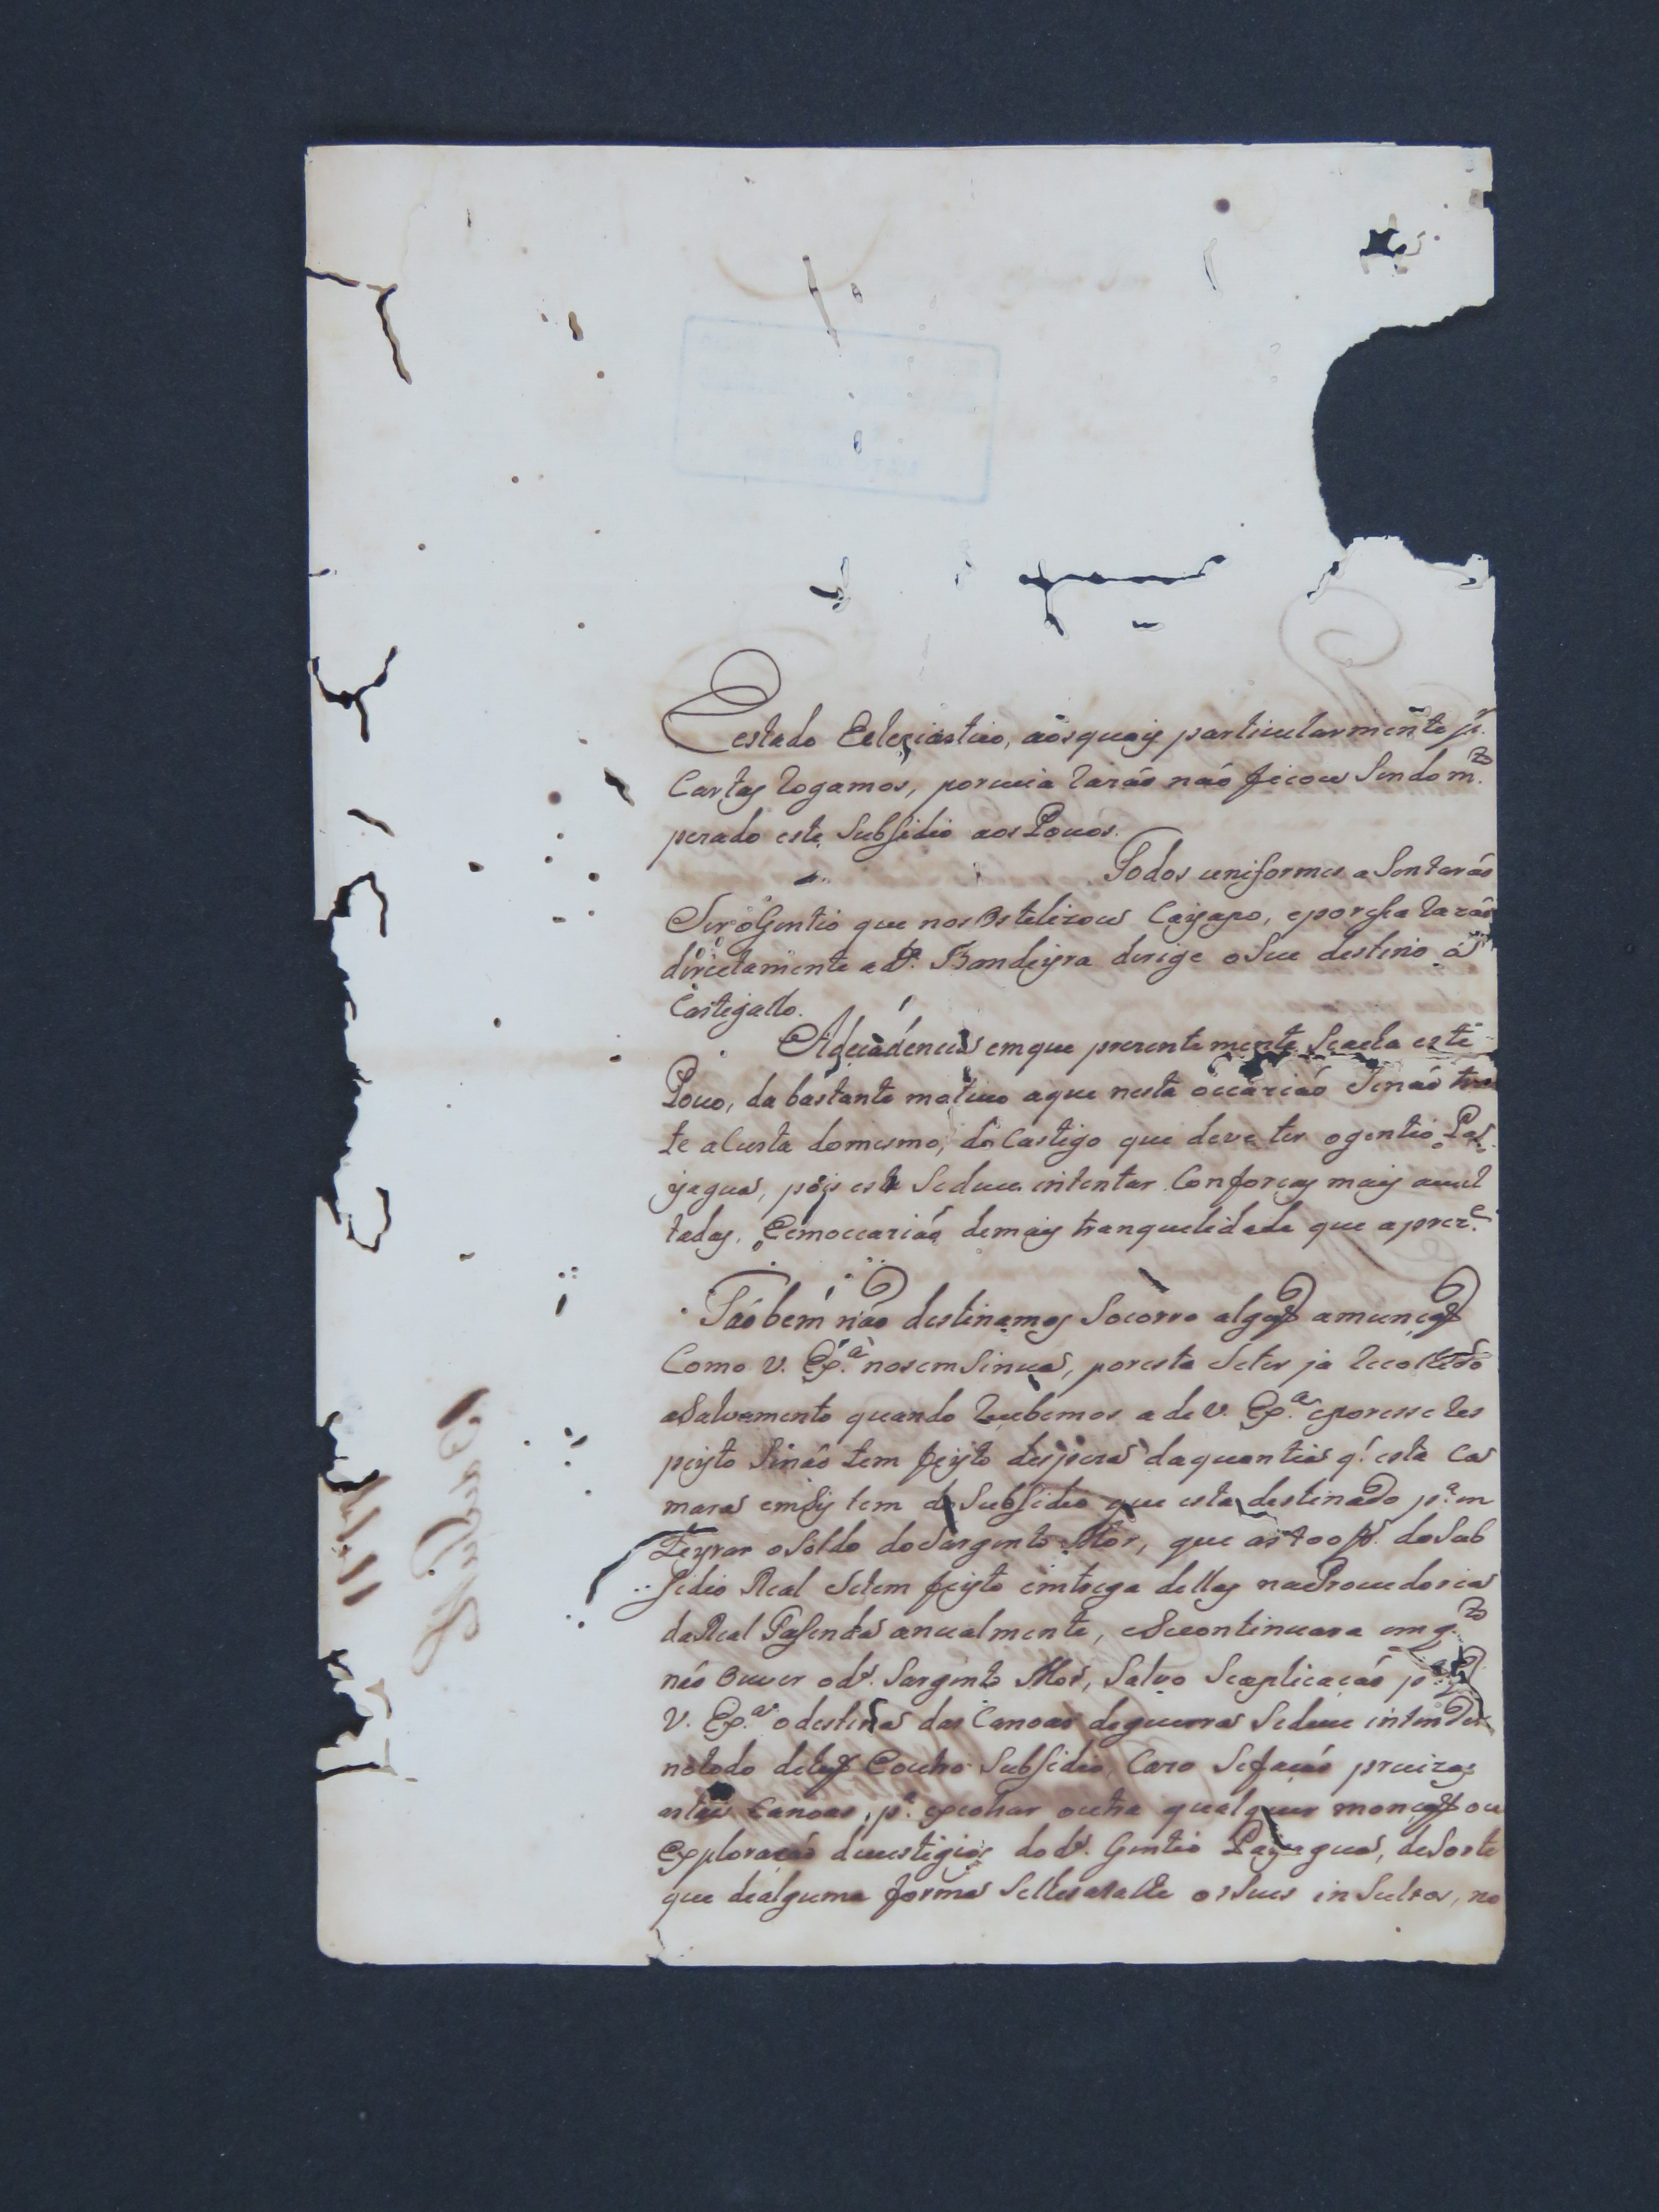 e estado Eclesiastico, aos quais particularmente p.r
Cartas Rogamos, por cuia Razão não ficou Sendo m.to
perado este Subsidio aos Povos.
Todos uniformes a Sentarão
Ser o Gentio que nos Ostelizou Cayapo, e por essa Razão
directamente a d.a Bandeyra dirige o Seu destino a
Castigallo.
A decadencia em que prezentemente Se acha este
Povo, da bastante motivo a que nesta occazião Se não tra
te a Custa do mesmo, do Castigo que deve ter o gentio Pa
yagua, pois este Se deve intentar Com forças mais avul
tadas, E em occazião de mais tranquelidade que a prez.e
Tão bem não destinamos Socorro algum a monção
Como V. Ex.a nos em Sinua, por esta Se ter ja Recolhido
a Salvamento quando Recebemos a de V. Ex.a e por esse Res
peyto Se não tem feyto despeza da quantia q' esta Ca
mara em Sy tem do Subsidio que esta destinado p.a in
teyrar o Soldo do Sargento Mor, que as 400 do Sub
sidio Real Se tem feyto emtrega dellas na Provedoria
da Real Fasenda anualmente, e Se continuara em q.to
não Ouver o d.o Sargento Mor, Salvo Se aplicação p.a
V. Ex.a o destina das Canoas de guerra Se deve intender
no todo de Outro Subsidio, Cazo Se fação precizas
as tais Canoas, p.a escoltar outra qualquer monção ou
Exploração de vestigios do d.o Gentio Payagua, de Sorte
que de alguma forma Se lhes atalhe os Seus in Sultos, no